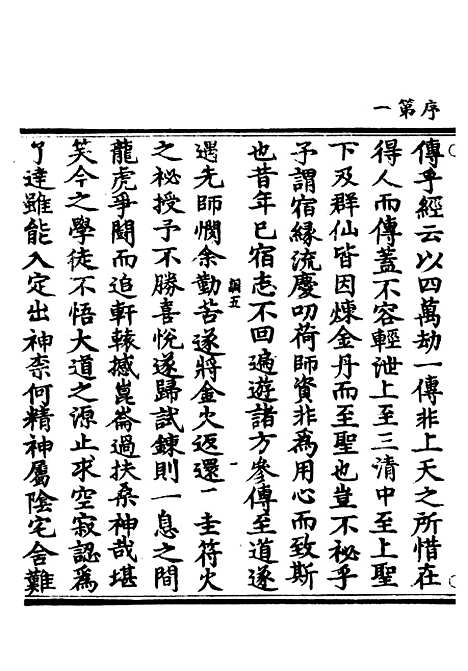 序第一
傳乎經云以四萬劫一傳非上天之所惜在
得人而傳蓋不容輕泄上至三清中至上聖
下及群仙皆因煉金丹而至聖也豈不秘乎
予謂宿緣流慶叨荷師資非為用心而致斯
也昔年已宿志不回遍遊諸方參傳至道遂
調五
一
遇先師憫余勤苦遂將金火返還一圭符火
之祕授予不勝喜悅遂歸試鍊則一息之間
龍虎爭鬪而追軒轅撼崑崙過扶桑神哉堪
笑今之學徒不悟大道之源止求空寂認為
了達雖能入定出神柰何精神屬陰宅舍難